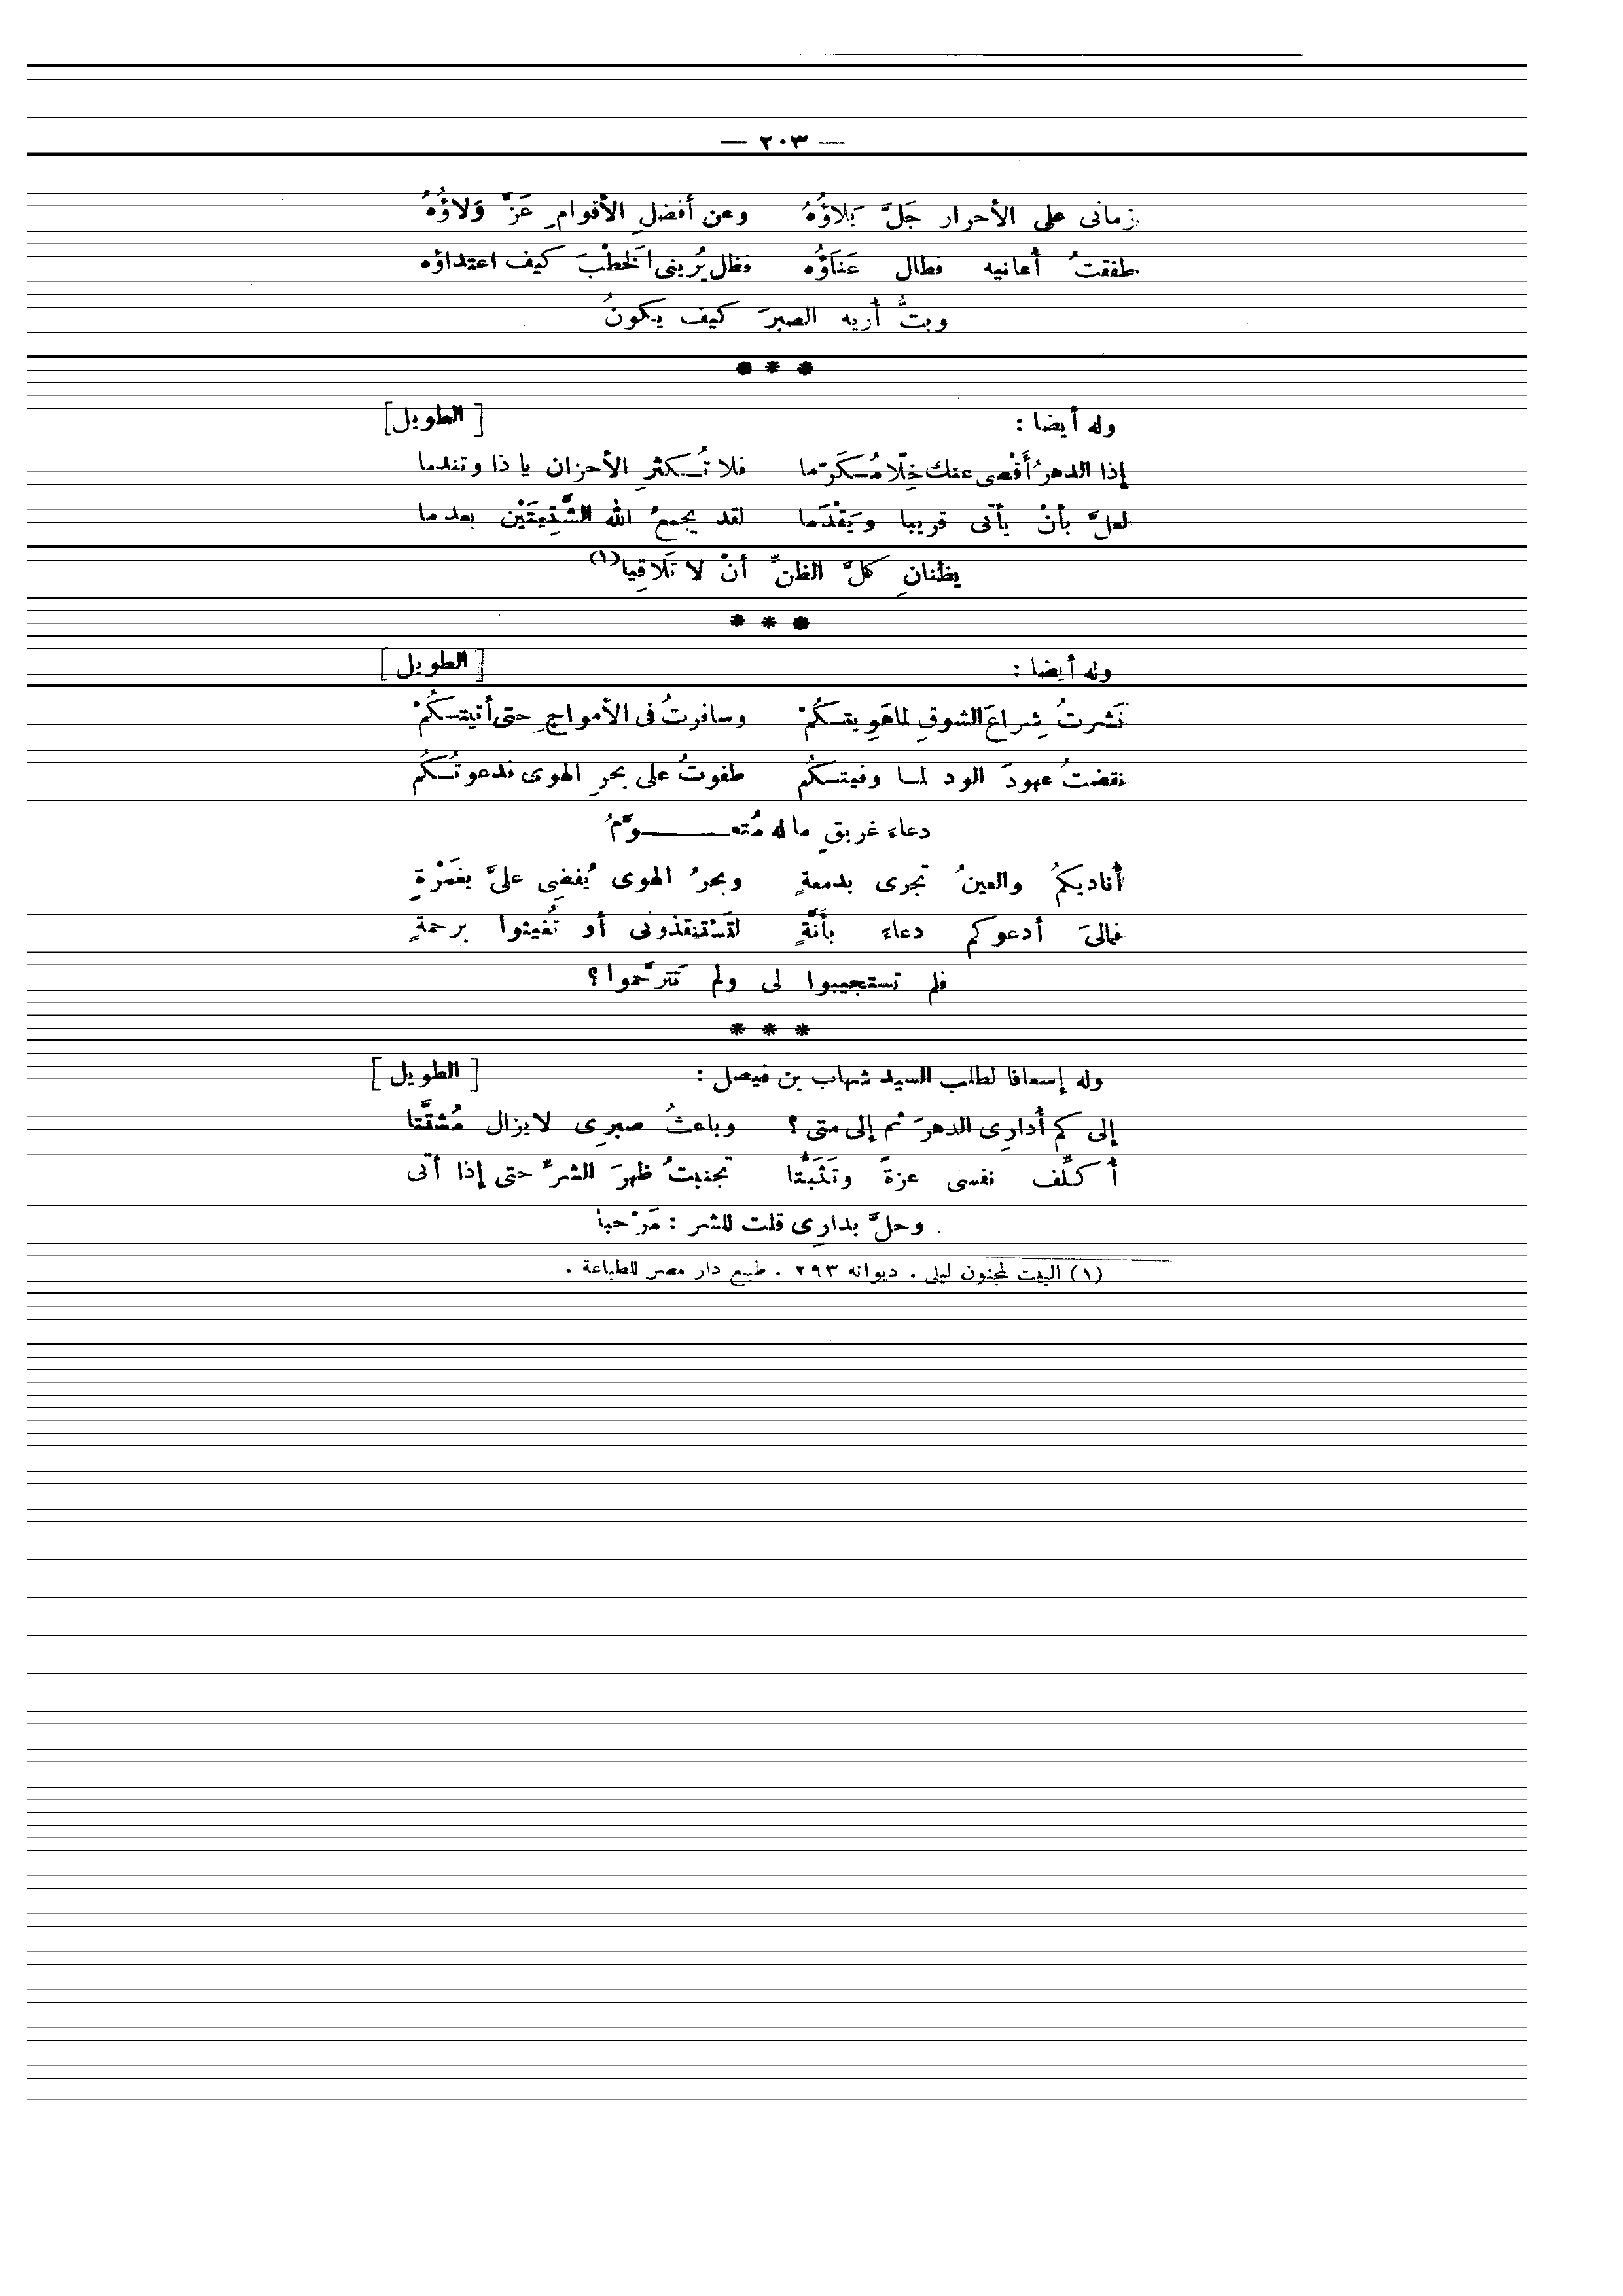 — ٢٠٣ —
زمانى على الأحرار جَلَّ بَلاؤُهُ وعن أفضلِ الأقوامِ عَزَّ وَلاؤُهُ
طفقتُ أعانيه فطال عَنَاؤُه فظل يُرينى الخَطْبَ كيف اعتداؤه
وبتُّ أُريه الصبرَ كيف يكونُ
* * *
وله أيضا : [ الطويل ]
إذا الدهرُ أَقْصى عنك خِلّا مُكَرّما فلا تُكثرِ الأحزان يا ذا وتندما
لعلَّ بأنْ يأتى قريبا ويَقْدَما لقد يجمعُ الله الشَّتِيتَيْن بعد ما
يظنانِ كلَّ الظنِّ أنْ لا تَلاقِيا (١)
* * *
وله أيضا : [ الطويل ]
نَشرتُ شِراعَ الشوقِ لما هَوِيتكُمْ وسافرتُ فى الأمواجِ حتى أتيتكُمْ
نقضتُ عهودَ الود لما وفيتكُم طفوتُ على بحرِ الهوى فدعوتُكُم
دعاءَ غريقٍ ما له مُتعوَّمُ
أناديكمُ والعينُ تجرى بدمعةٍ وبحرُ الهوى يُفضِى علىَّ بغَمْرْةٍ
فمالىَ أدعوكم دعاءَ بأنَّةٍ لتَسْتنقذونى أو تُغيثوا برحمةٍ
فلم تستجيبوا لى ولم تَترحَّموا ؟
* * *
وله إسعافا لطلب السيد شهاب بن فيصل : [ الطويل ]
إلى كم أُدارِى الدهرَ ثم إلى متى ؟ وباعثُ صبرِى لا يزال مُشتَّتا
أُكلِّف نفسى عزةً وتَثَبُّتا تجنبتُ ظهرَ الشرِّ حتى إذا أتى
وحلَّ بدارِى قلت للشر : مَرْحبا
(١) البيت لمجنون ليلى . ديوانه ٢٩٣ . طبع دار مصر للطباعة .